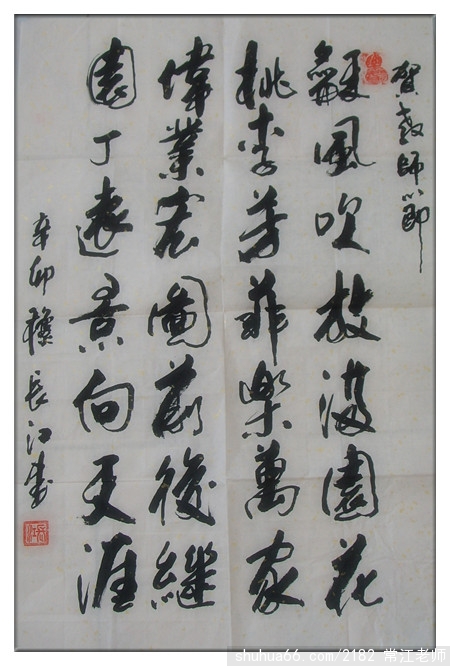 賀教師節
風吹放滿園花
桃李芳菲樂萬家
偉業宏圖前後繼
園丁遠景向天涯
辛卯 長江書
shuhua66.com/2182 常江老师